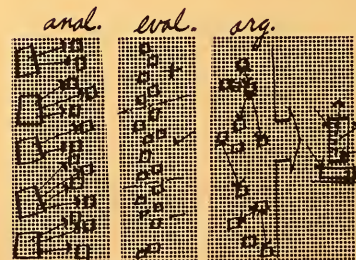 anal. eval. arg.